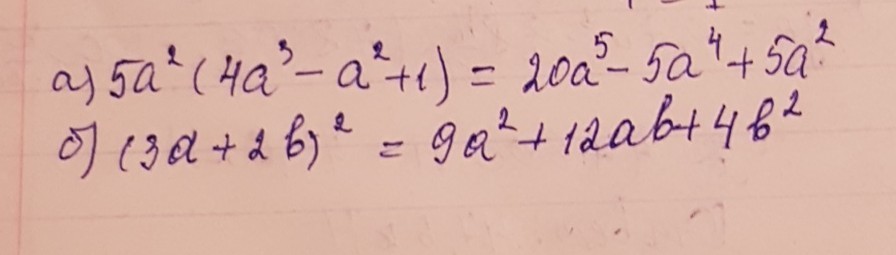 а) 5a²(4a³ - a² + 1) = 20a⁵ - 5a⁴ + 5a²
б) (3a + 2b)² = 9a² + 12ab + 4b²